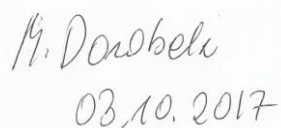 M. Dorobek
03.10.2017